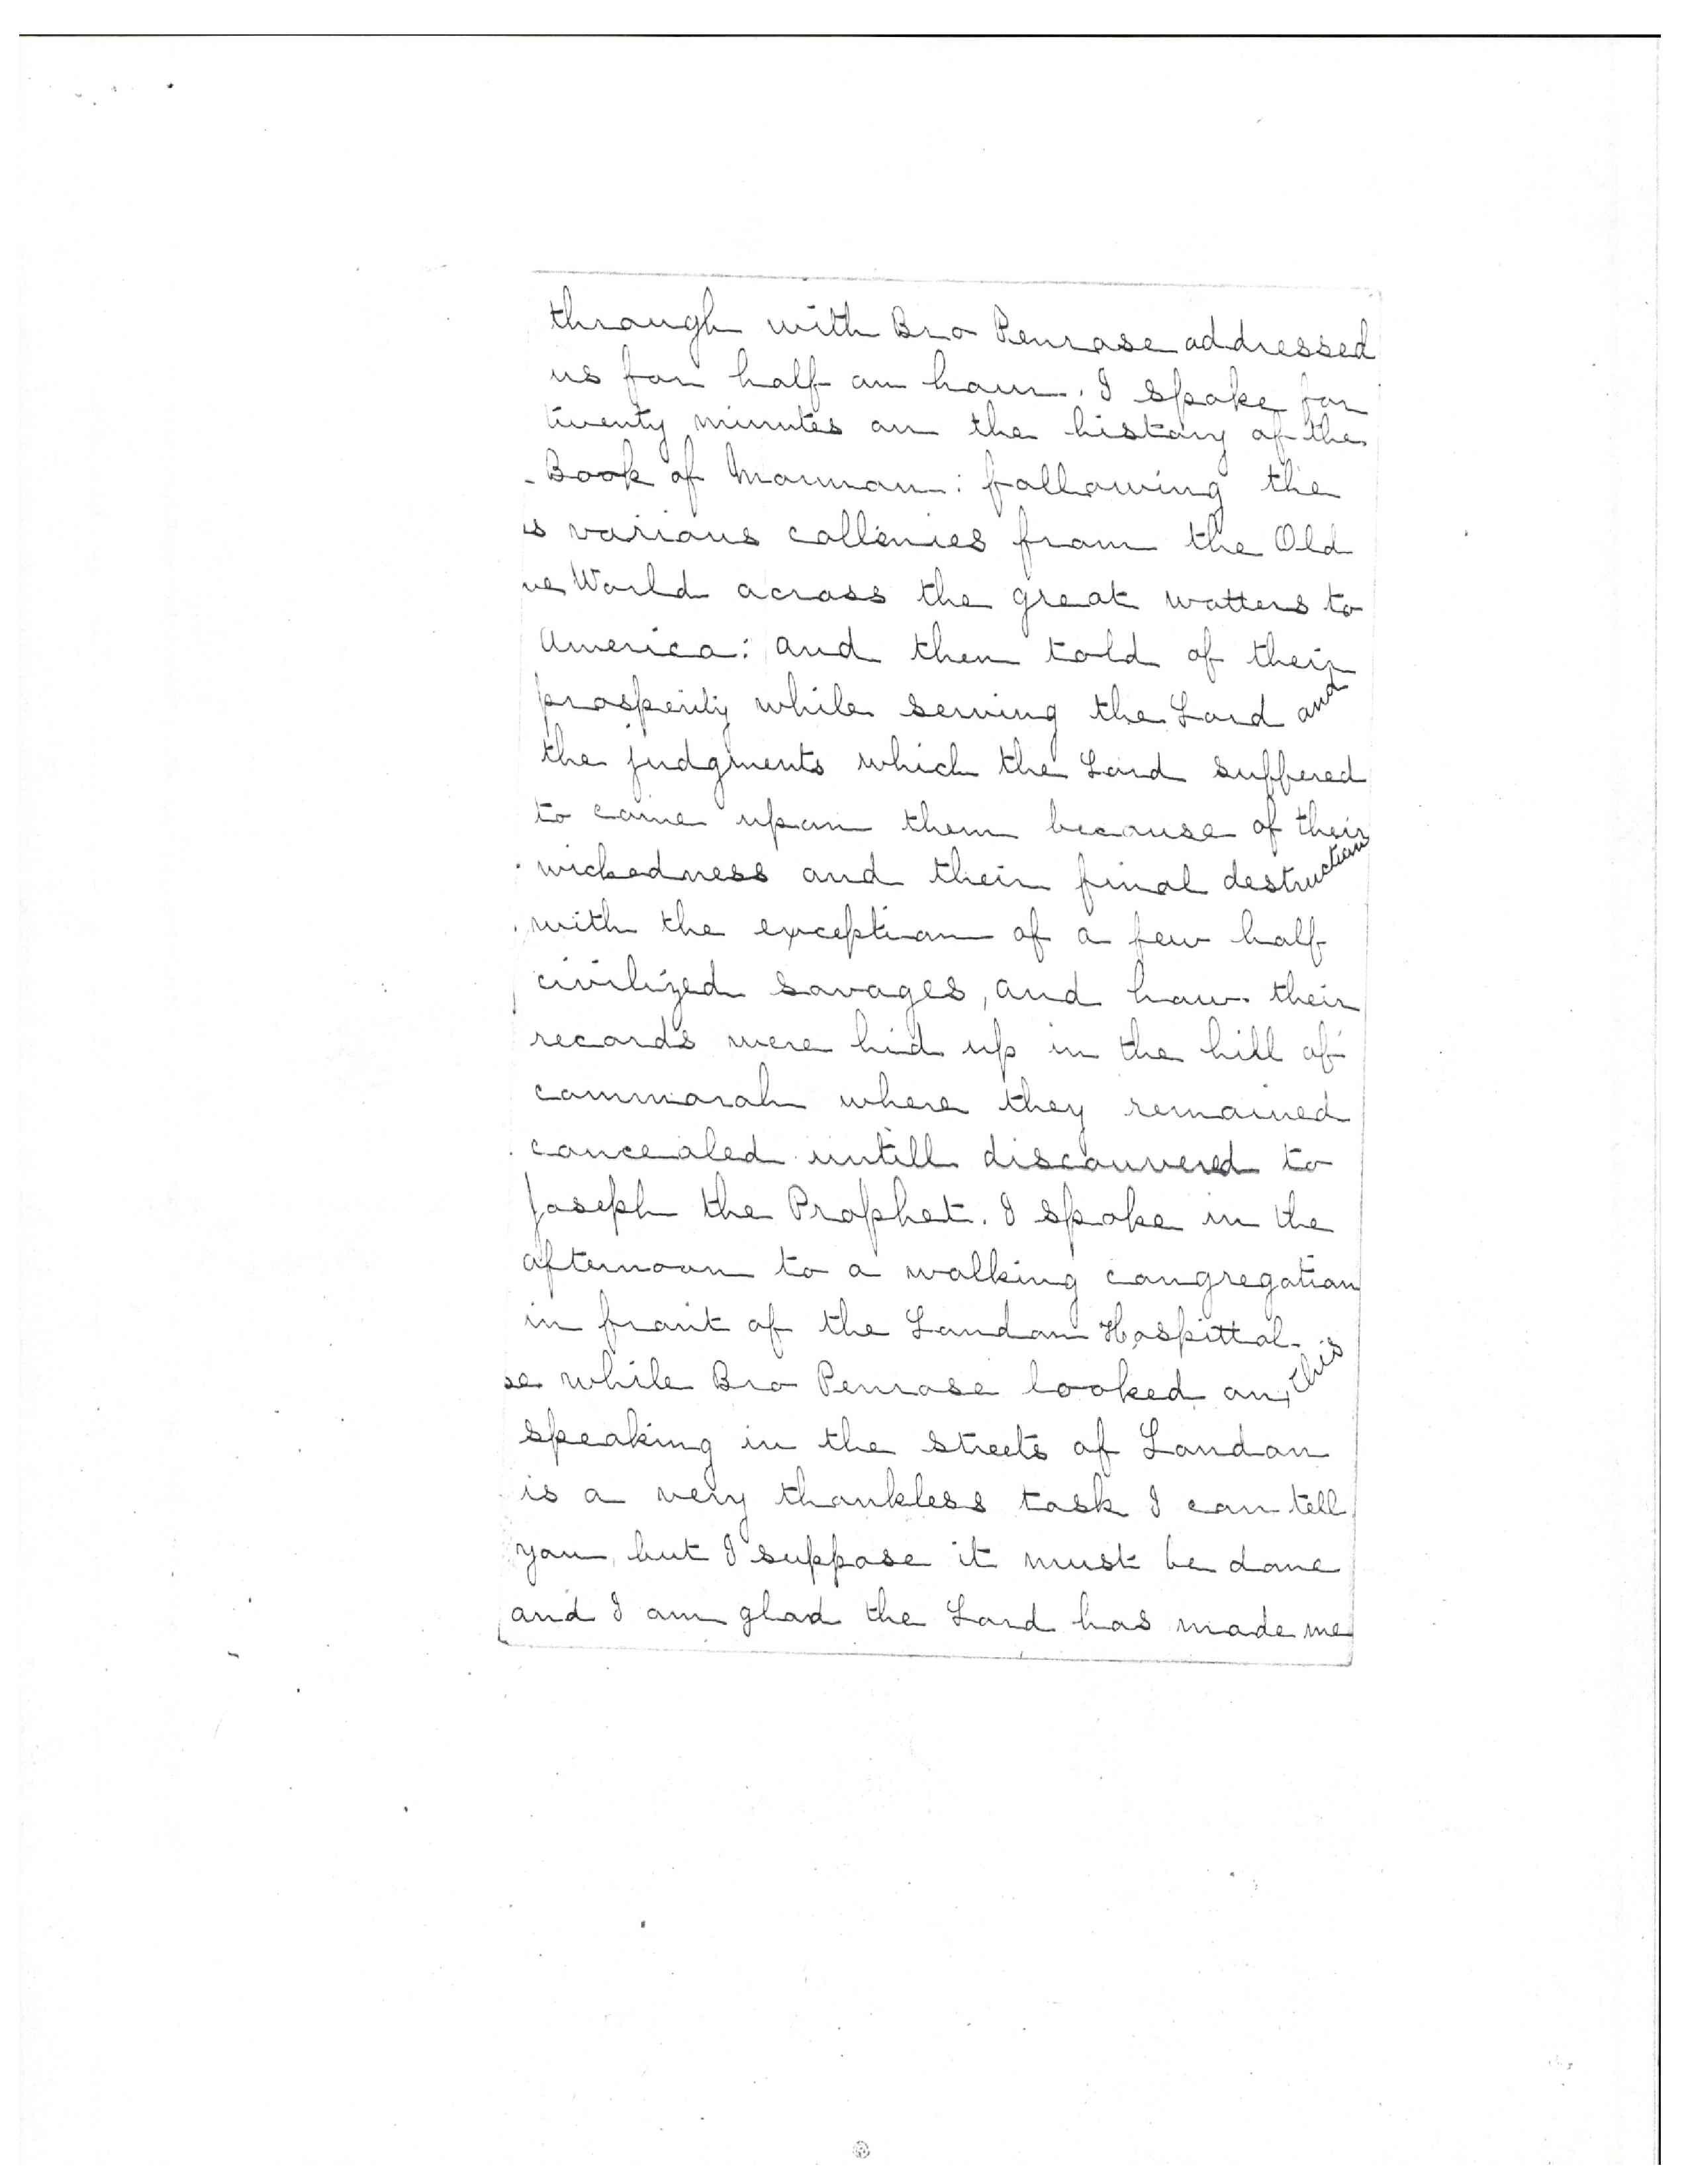 through with Bro Penrose addressed
us for half an hour. I spoke for
twenty minutes on the history of the
Book of Mormon: following the
s various collenies from the Old
ve World across the great watters to
America: and then told of their
prosperity while serving the Lord and
the judgments which the Lord suffered
to come upon them because of their
wickedness and their final destruction
with the exception of a few half
civilized savages, and how their
records were hid up in the hill of
commorah where they remained
concealed untill discouvered to
Joseph the Prophet. I spoke in the
afternoon to a walking congregation
in front of the London Hospittal
se while Bro Penrose looked on, this
speaking in the streets of London
is a very thankless task I can tell
you, but I suppose it must be done
and I am glad the Lord has made me